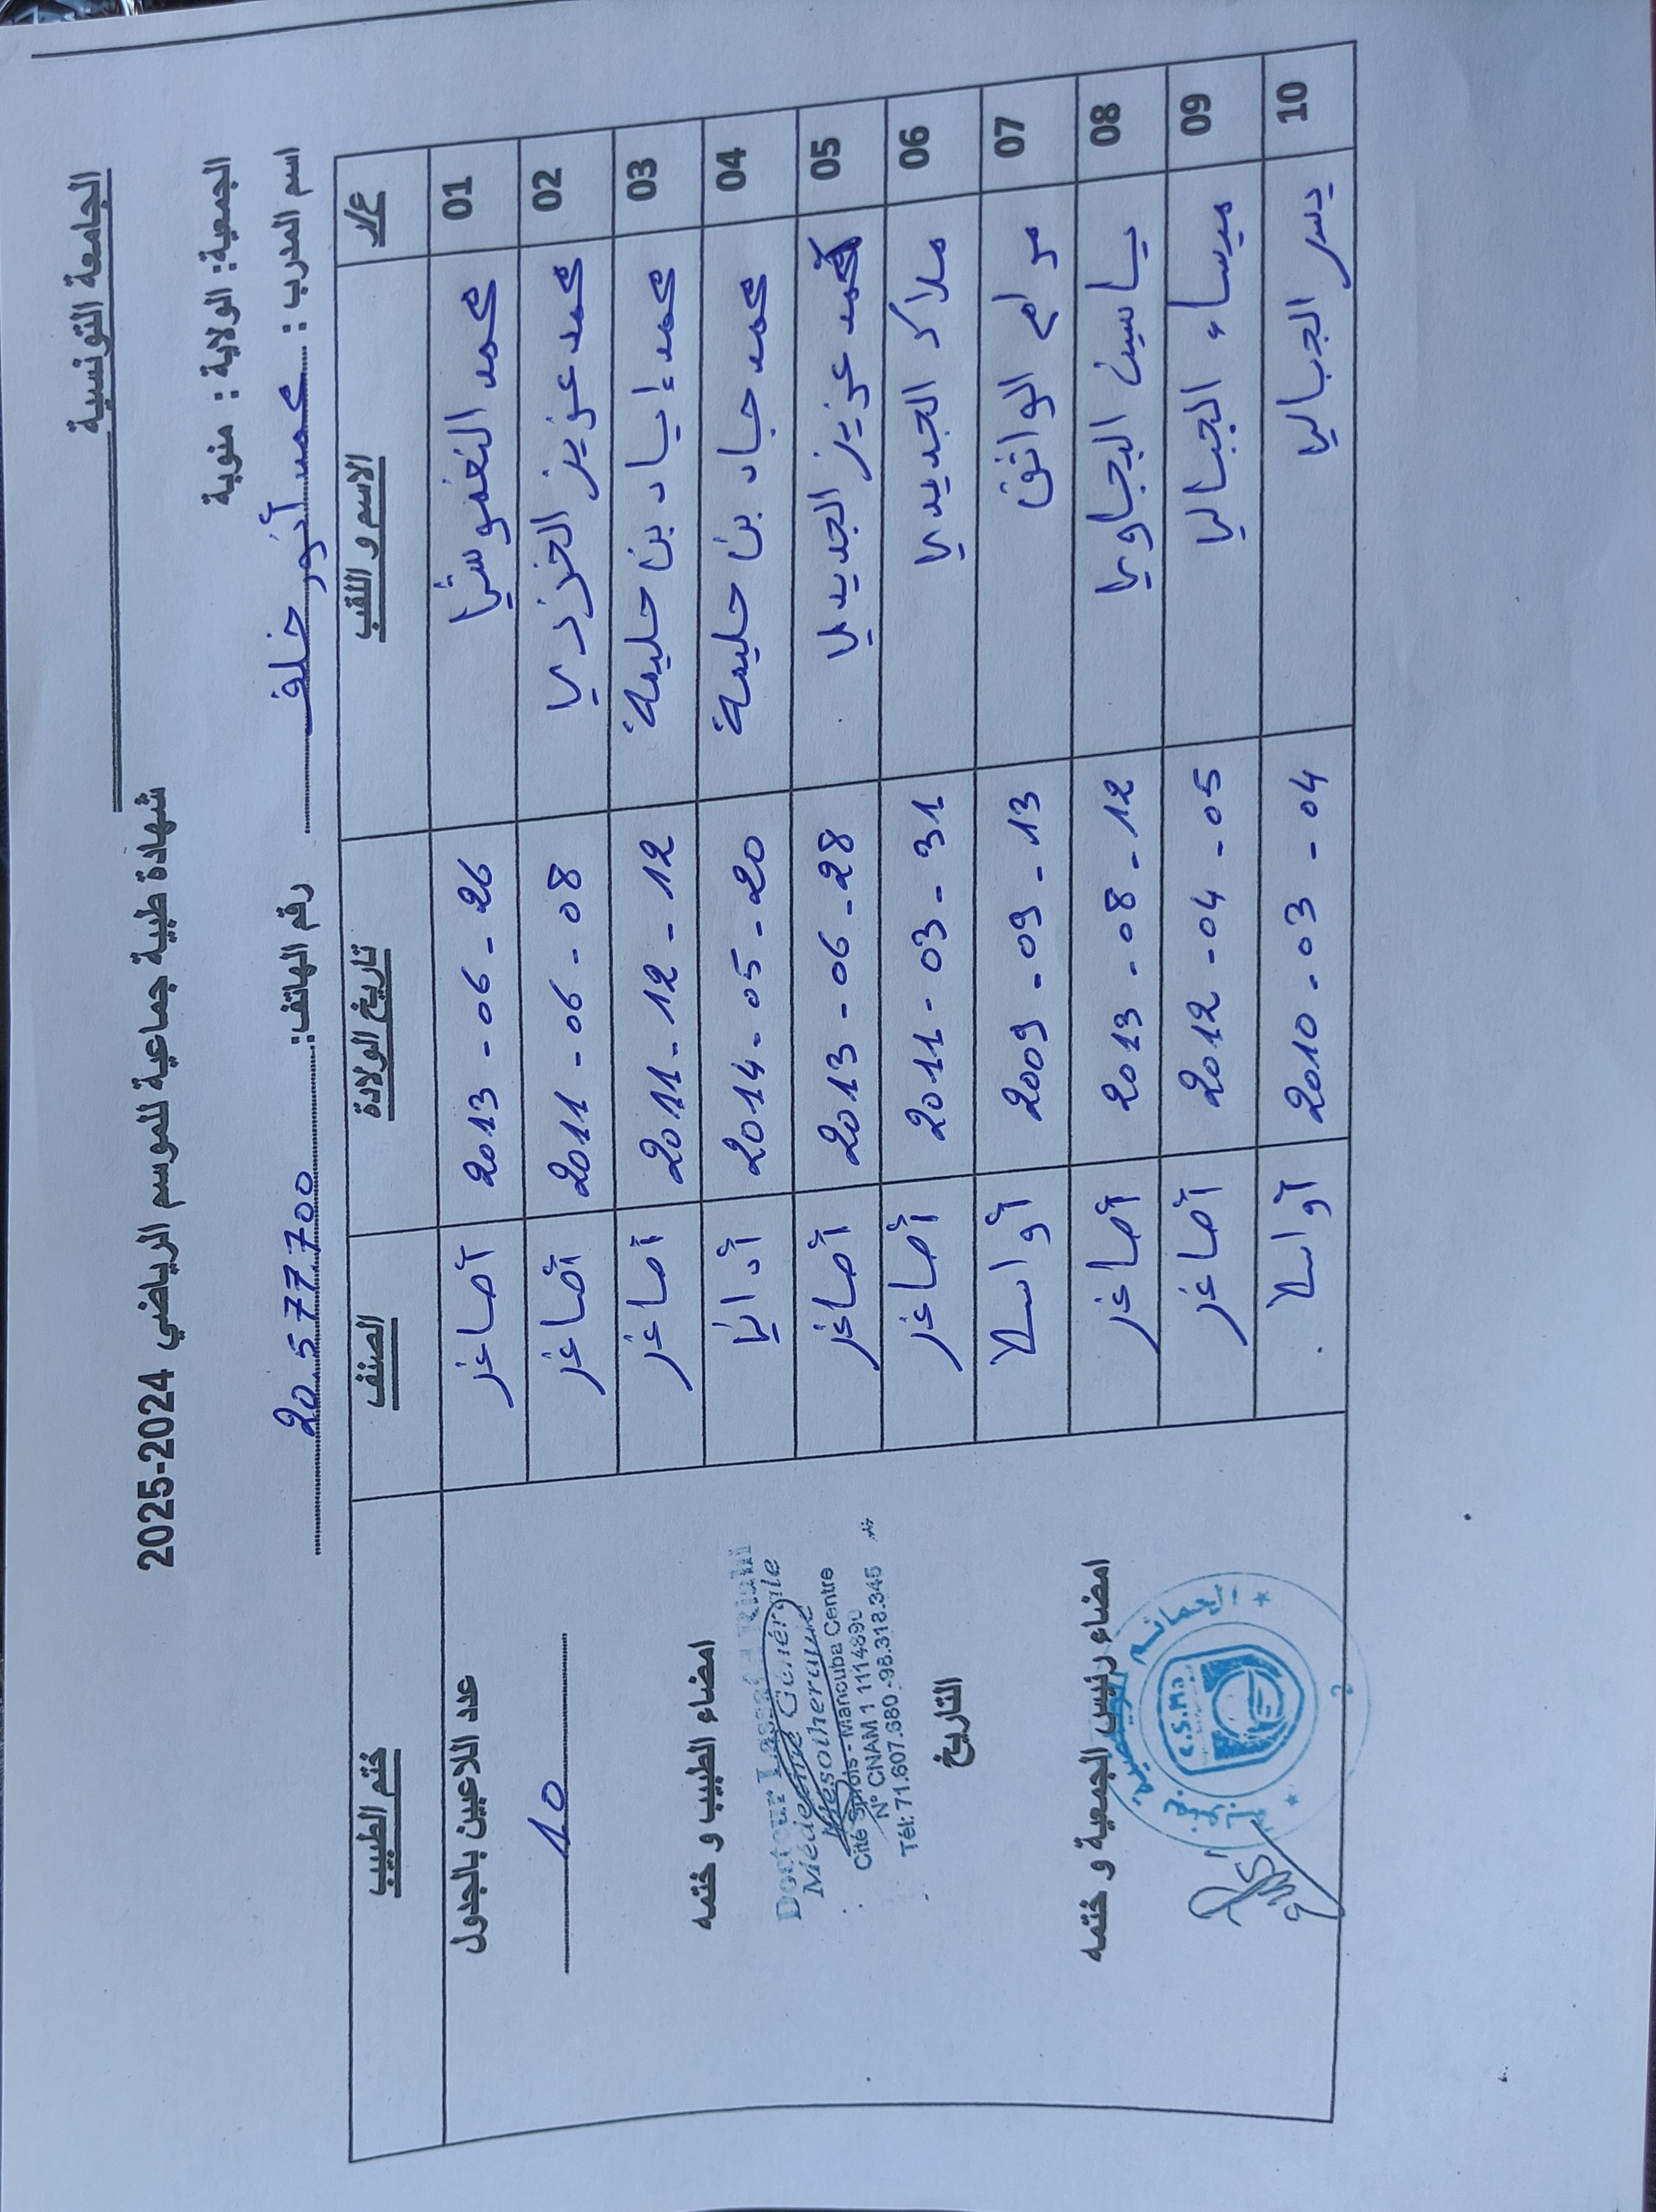 الجامعة التونسية
شهادة طبية جماعية للموسم الرياضي 2024-2025
الجمعية: الولاية : منوبة
اسم المدرب : محمد أنور خلف رقم الهاتف: 20.577.700
ع/ر الاسم و اللقب تاريخ الولادة الصنف ختم الطبيب
01 محمد النغموشي 2013 - 06 - 26 أصاغر
02 محمد عزيز الخزري 2011 - 06 - 08 أصاغر
03 محمد إياد بن حليمة 2011 - 12 - 12 أصاغر
04 محمد جاد بن حليمة 2014 - 05 - 20 أداني
05 محمد عزيز الجديدي 2013 - 06 - 28 أصاغر
06 ملاك الجديدي 2011 - 03 - 31 أصاغر
07 مرام الواثق 2009 - 09 - 13 أواسط
08 ياسين البجاوي 2013 - 08 - 12 أصاغر
09 ميساء الجبالي 2012 - 04 - 05 أصاغر
10 يسر الجبالي 2010 - 03 - 04 أواسط
عدد اللاعبين بالجدول
10
امضاء الطبيب و ختمه
Docteur Lassad Riahi
Médecine Générale
Mésothérapie
Cité Sprols - Manouba Centre
N° CNAM 1 111489
Tél: 71.607.680 - 98.318.346
التاريخ
امضاء رئيس الجمعية و ختمه
C.S.M.